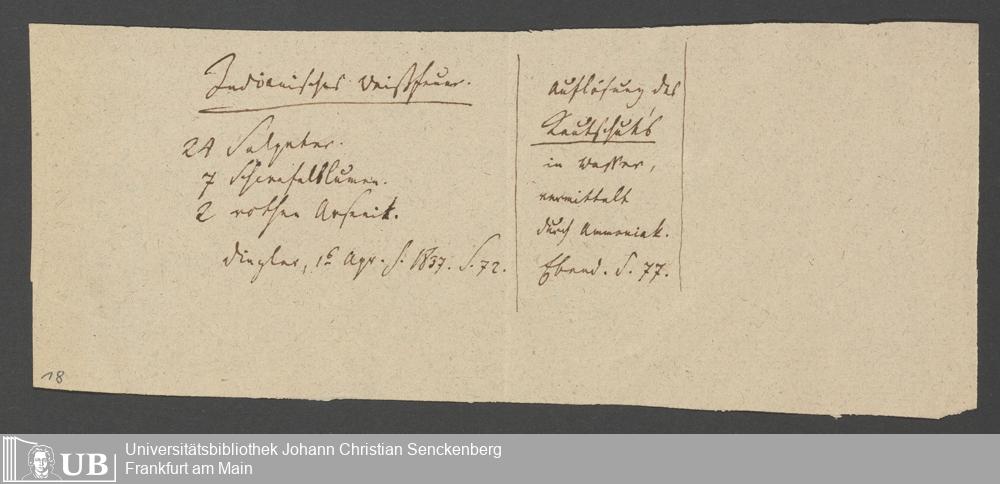 Indianisches Weißfeuer.
24 Salpeter.
7 Schwefelblumen.
2 rothen Arsenik.
Dingler, 1s Apr. h. 1837. S. 72.
Auflösung des
Kautschuk's
in Wasser,
vermittelt
durch Ammoniak.
Ebend. S. 77.
18
UB
Universitätsbibliothek Johann Christian Senckenberg
Frankfurt am Main